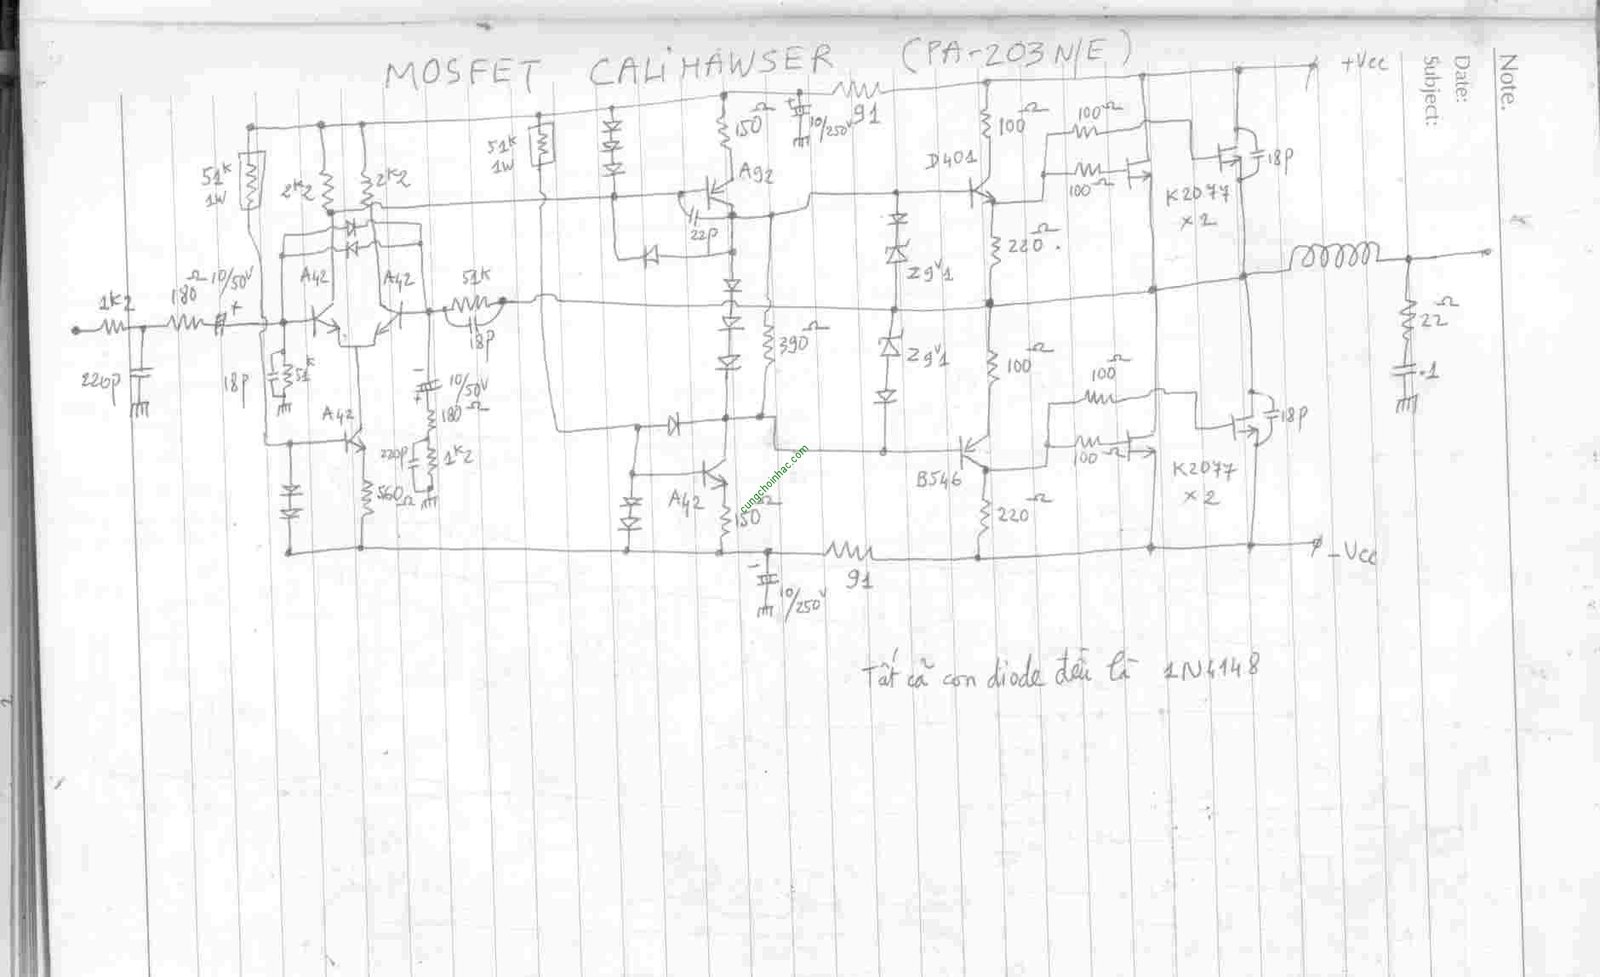 MOSFET CALiHAWSER (PA-203N/E)
+Vcc
Note.
Date:
Subject:
51K
1W
2K2
2K2
51K
1W
150Ω
10/250V
91
100Ω
100Ω
100Ω
18P
D401
A92
22P
K2077
x2
220Ω
Z9V1
A42
A42
51K
18P
1K2
180Ω
10/50V
+
220P
18P
51K
10/50V
180Ω
220P
1K2
A42
560Ω
390Ω
Z9V1
100Ω
100Ω
100Ω
18P
K2077
x2
22Ω
.1
B546
220Ω
A42
150Ω
cungchoinhac.com
-Vcc
91
10/250V
Tất cả con diode đều là 1N4148